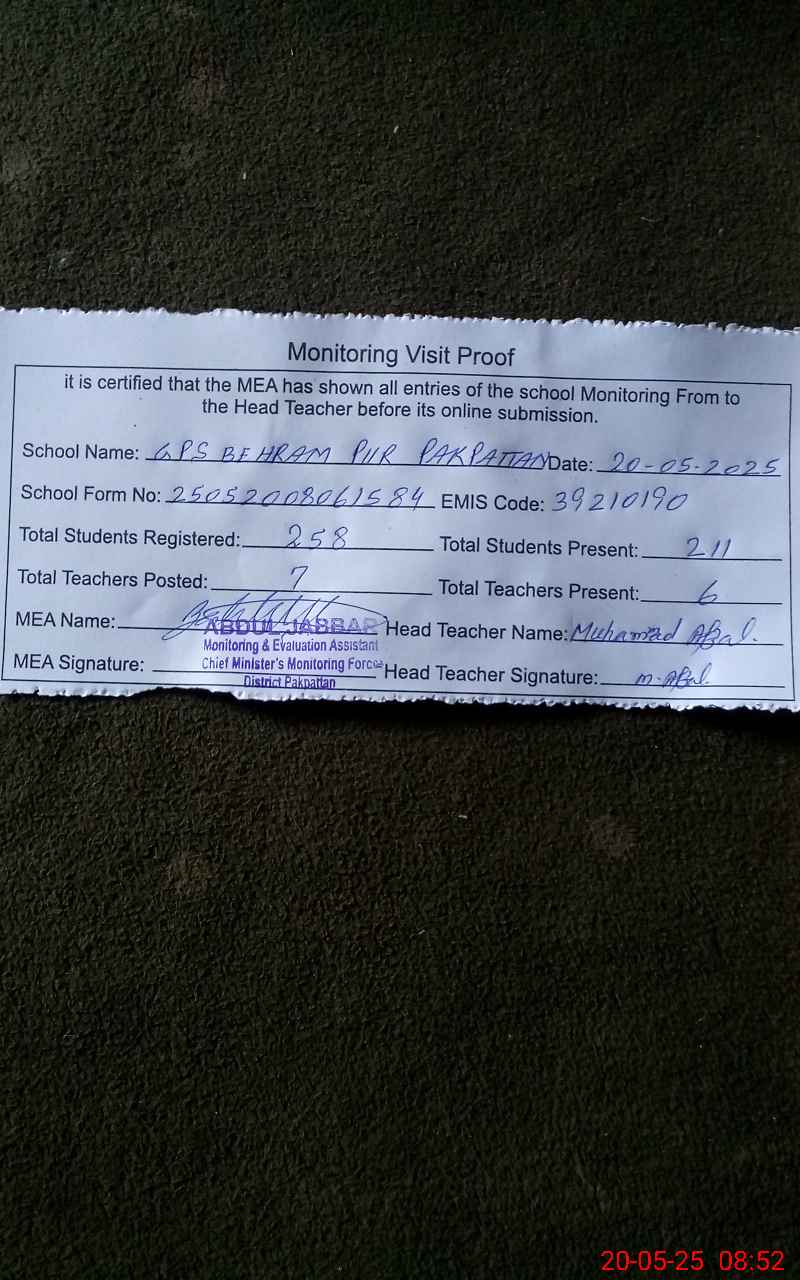 Monitoring Visit Proof
it is certified that the MEA has shown all entries of the school Monitoring From to
the Head Teacher before its online submission.
School Name: GPS BEHRAM PUR PAKPATTAN Date: 20-05-2025
School Form No: 25052008061584 EMIS Code: 39210190
Total Students Registered: 258 Total Students Present: 211
Total Teachers Posted: 7 Total Teachers Present: 6
MEA Name: ABDUL JABBAR Head Teacher Name: Muhammad Afzal.
Monitoring & Evaluation Assistant
MEA Signature: Chief Minister's Monitoring Force Head Teacher Signature: M. Afzal.
District Pakpattan
20-05-25 08:52